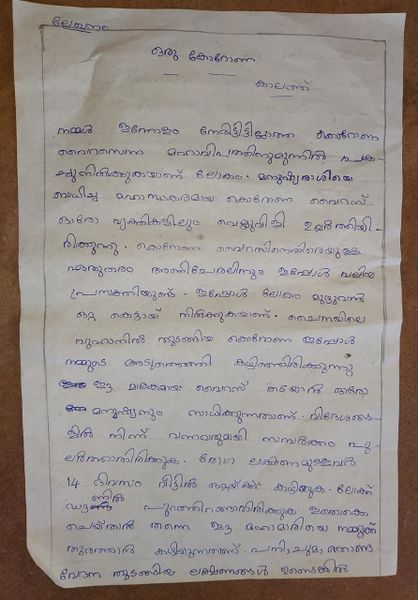 ലേഖനം
ഒരു കോറോണ
കാലത്ത്
നമ്മൾ ഇന്നോളം നേരിട്ടിട്ടില്ലാത്ത കൊറോണ
വൈറസെന്ന മഹാവിപത്തിനുമുന്നിൽ പക
ച്ചുനിൽക്കുകയാണ് ലോകം. മനുഷ്യരാശിയെ
ബാധിച്ച മാരകമായ കൊറോണ വൈറസ്
ഓരോ വ്യക്തികളിലും വെല്ലുവിളി ഉയർത്തിയി
രിക്കുന്നു. കൊറോണ വൈറസിനെതിരെയുള്ള
ഏതുതരം അണിചേരലിനും ഇപ്പോൾ വലിയ
പ്രസക്തിയുണ്ട്. ഇപ്പോൾ ലോകം മുഴുവൻ
ഒറ്റ കെട്ടായ് നിൽക്കുകയാണ്. ചൈനയിലെ
വുഹാനിൽ തുടങ്ങിയ കൊറോണ ഇപ്പോൾ
നമ്മുടെ അടുത്തെത്തി കഴിഞ്ഞിരിക്കുന്നു
ഈ മാരകമായ വൈറസ് തടയാൻ ഓരോ
മനുഷ്യനും സാധിക്കുന്നതാണ്. വിദേശങ്ങ
ളിൽ നിന്ന് വന്നവരുമായി സമ്പർക്കം പു
ലർത്താതിരിക്കുക. രോഗ ലക്ഷണമുള്ളവർ
14 ദിവസം വീട്ടിൽ ഒറ്റയ്ക്ക് കഴിയുക. ലോക്ക്
ഡൗണിൽ പുറത്തിറങ്ങാതിരിക്കുക ഇതൊക്കെ
ചെയ്താൽ തന്നെ ഈ മഹാമാരിയെ നമുക്ക്
തുരത്താൻ കഴിയുന്നതാണ്. പനി, ചുമ, തൊണ്ട
വേദന തുടങ്ങിയ ലക്ഷണങ്ങൾ ഉണ്ടെങ്കിൽ